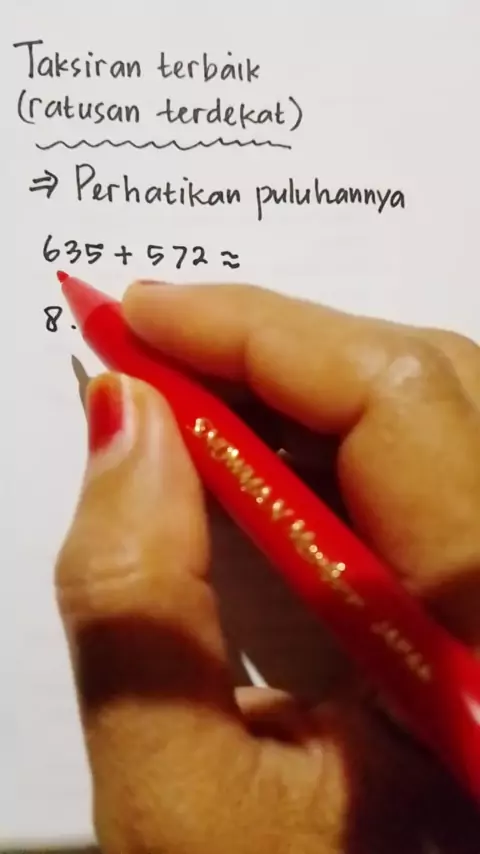 Taksiran terbaik
(ratusan terdekat)
⇒ Perhatikan puluhannya
635 + 572 ≈
8.
SNOWMAN Marker
JAPAN